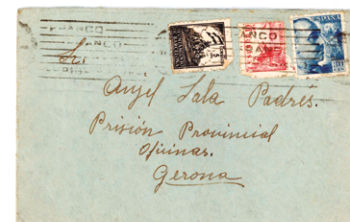 ESPAÑA
Angel Sala Padrés.
Prisión Provincial
Oficinas.
Gerona